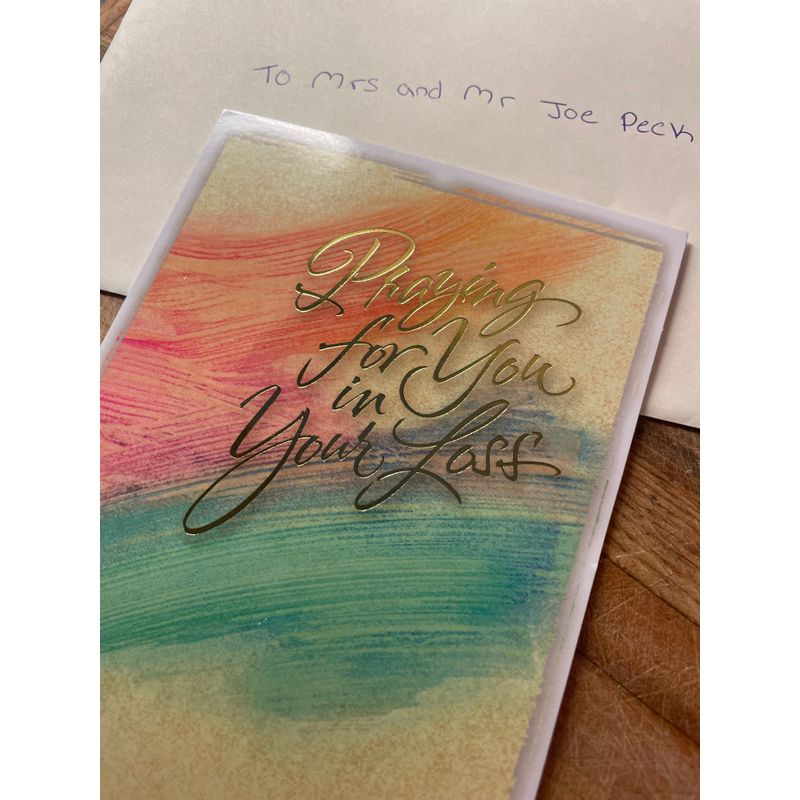 To Mrs and Mr Joe Peck
Praying
for You
in
Your Loss